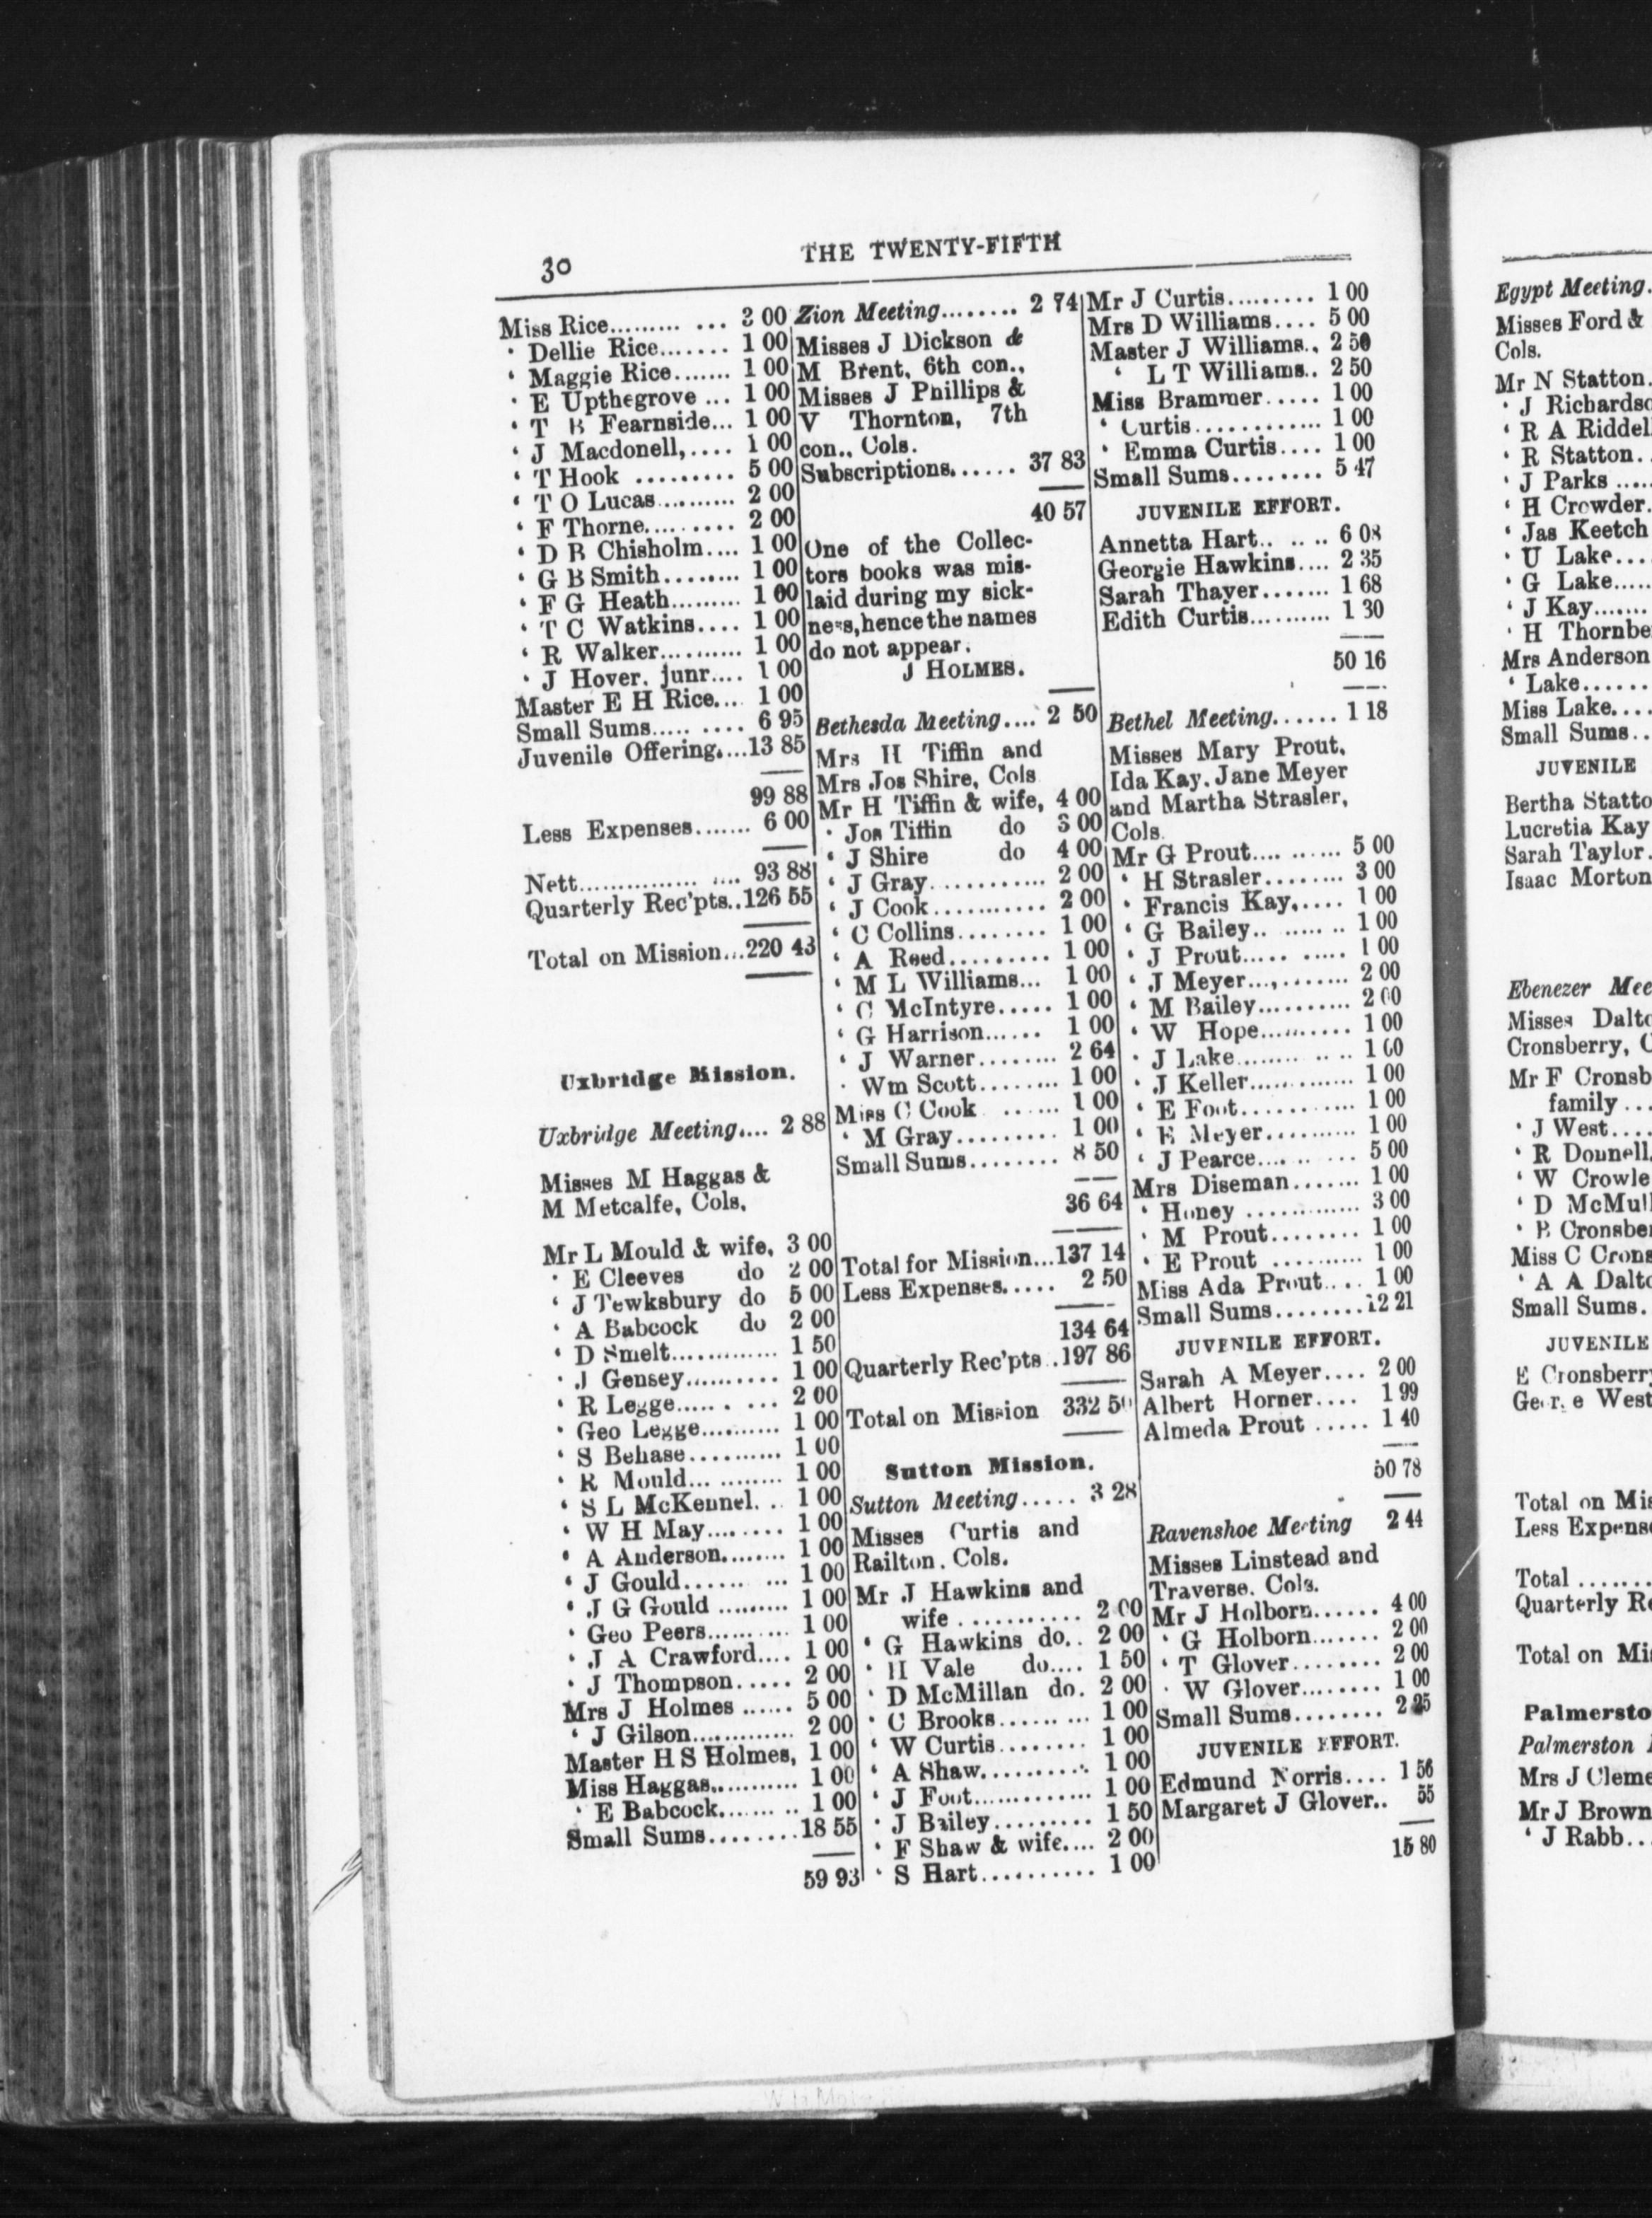 30
THE TWENTY-FIFTH
Miss Rice......... ... 3 00
‘ Dellie Rice....... 1 00
‘ Maggie Rice....... 1 00
‘ E Upthegrove ... 1 00
‘ T B Fearnside... 1 00
‘ J Macdonell,.... 1 00
‘ T Hook ......... 5 00
‘ T O Lucas......... 2 00
‘ F Thorne......... 2 00
‘ D B Chisholm.... 1 00
‘ G B Smith........ 1 00
‘ F G Heath......... 1 00
‘ T C Watkins.... 1 00
‘ R Walker.......... 1 00
‘ J Hover. junr.... 1 00
Master E H Rice... 1 00
Small Sums..... .... 6 95
Juvenile Offering....13 85
99 88
Less Expenses....... 6 00
Nett............... .... 93 88
Quarterly Rec'pts..126 55
Total on Mission...220 43
Uxbridge Mission.
Uxbridge Meeting.... 2 88
Misses M Haggas &
M Metcalfe, Cols.
Mr L Mould & wife, 3 00
‘ E Cleeves do 2 00
‘ J Tewksbury do 5 00
‘ A Babcock do 2 00
‘ D Smelt............. 1 50
‘ J Gensey.......... 1 00
‘ R Legge...... . ... 2 00
‘ Geo Legge.......... 1 00
‘ S Behase.......... 1 00
‘ R Mould... ......... 1 00
‘ S L McKennel. .. 1 00
‘ W H May......... 1 00
‘ A Anderson........ 1 00
‘ J Gould....... ... 1 00
‘ J G Gould ......... 1 00
‘ Geo Peers.......... 1 00
‘ J A Crawford.... 1 00
‘ J Thompson..... 2 00
Mrs J Holmes ...... 5 00
‘ J Gilson............. 2 00
Master H S Holmes, 1 00
Miss Haggas........... 1 00
‘ E Babcock....... .. 1 00
Small Sums........18 55
59 93
Zion Meeting........ 2 74
Misses J Dickson &
M Brent, 6th con.,
Misses J Phillips &
V Thornton, 7th
con., Cols.
Subscriptions...... 37 83
40 57
One of the Collec-
tors books was mis-
laid during my sick-
ness, hence the names
do not appear.
J HOLMES.
Bethesda Meeting.... 2 50
Mrs H Tiffin and
Mrs Jos Shire, Cols
Mr H Tiffin & wife, 4 00
‘ Jos Tiffin do 3 00
‘ J Shire do 4 00
‘ J Gray........... 2 00
‘ J Cook........... 2 00
‘ C Collins........ 1 00
‘ A Reed......... 1 00
‘ M L Williams... 1 00
‘ C McIntyre..... 1 00
‘ G Harrison...... 1 00
‘ J Warner........ 2 64
‘ Wm Scott........ 1 00
Miss C Cook ...... 1 00
‘ M Gray......... 1 00
Small Sums........ 8 50
36 64
Total for Mission...137 14
Less Expenses..... 2 50
134 64
Quarterly Rec'pts ..197 86
Total on Mission 332 50
Sutton Mission.
Sutton Meeting..... 3 28
Misses Curtis and
Railton. Cols.
Mr J Hawkins and
wife ........... 2 00
‘ G Hawkins do.. 2 00
‘ H Vale do.... 1 50
‘ D McMillan do. 2 00
‘ C Brooks....... ... 1 00
‘ W Curtis......... 1 00
‘ A Shaw.......... 1 00
‘ J Foot............ 1 00
‘ J Bailey......... 1 50
‘ F Shaw & wife.... 2 00
‘ S Hart.......... 1 00
Mr J Curtis......... 1 00
Mrs D Williams.... 5 00
Master J Williams.. 2 50
‘ L T Williams.. 2 50
Miss Brammer..... 1 00
‘ Curtis............ 1 00
‘ Emma Curtis.... 1 00
Small Sums........ 5 47
JUVENILE EFFORT.
Annetta Hart.. .. .. 6 08
Georgie Hawkins.... 2 35
Sarah Thayer....... 1 68
Edith Curtis.......... 1 30
50 16
Bethel Meeting...... 1 18
Misses Mary Prout,
Ida Kay, Jane Meyer
and Martha Strasler,
Cols.
Mr G Prout.... ...... 5 00
‘ H Strasler........ 3 00
‘ Francis Kay..... 1 00
‘ G Bailey.. ...... .. 1 00
‘ J Prout..... ..... 1 00
‘ J Meyer............ 2 00
‘ M Bailey.......... 2 00
‘ W Hope.......... 1 00
‘ J Lake........ .. .. 1 00
‘ J Keller............. 1 00
‘ E Foot............ 1 00
‘ E Meyer.......... 1 00
‘ J Pearce.... .. ... 5 00
Mrs Diseman....... 1 00
‘ Honey ............. 3 00
‘ M Prout........ 1 00
‘ E Prout .......... 1 00
Miss Ada Prout.... 1 00
Small Sums........12 21
JUVENILE EFFORT.
Sarah A Meyer.... 2 00
Albert Horner.... 1 99
Almeda Prout ..... 1 40
50 78
Ravenshoe Meeting 2 44
Misses Linstead and
Traverse. Cols.
Mr J Holborn...... 4 00
‘ G Holborn....... 2 00
‘ T Glover........ 2 00
‘ W Glover........ 1 00
Small Sums........ 2 25
JUVENILE EFFORT.
Edmund Norris.... 1 56
Margaret J Glover.. 55
15 80
Egypt Meeting.
Misses Ford &
Cols.
Mr N Statton.
‘ J Richardso
‘ R A Riddel
‘ R Statton..
‘ J Parks ....
‘ H Crowder.
‘ Jas Keetch
‘ U Lake...
‘ G Lake.....
‘ J Kay.......
‘ H Thornbe
Mrs Anderson
‘ Lake......
Miss Lake....
Small Sums..
JUVENILE
Bertha Statto
Lucretia Kay
Sarah Taylor.
Isaac Morton
Ebenezer Mee
Misses Dalto
Cronsberry, C
Mr F Cronsb
family ...
‘ J West....
‘ R Donnell,
‘ W Crowle
‘ D McMul
‘ R Cronsbe
Miss C Crons
‘ A A Dalto
Small Sums.
JUVENILE
E Cronsberry
George West
Total on Mis
Less Expense
Total .......
Quarterly Re
Total on Mi
Palmersto
Palmerston
Mrs J Cleme
Mr J Brown
‘ J Rabb...